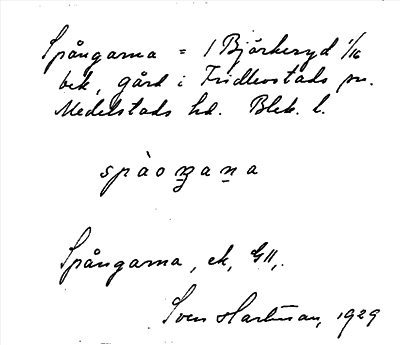 Spångarna = 1 Björkeryd 1/16
bek, gård i Fridlevstads sn.
Medelstads hd. Blek. l.
spàoŋana
Spångarna, ek, G11,.
Sven Hartman, 1929